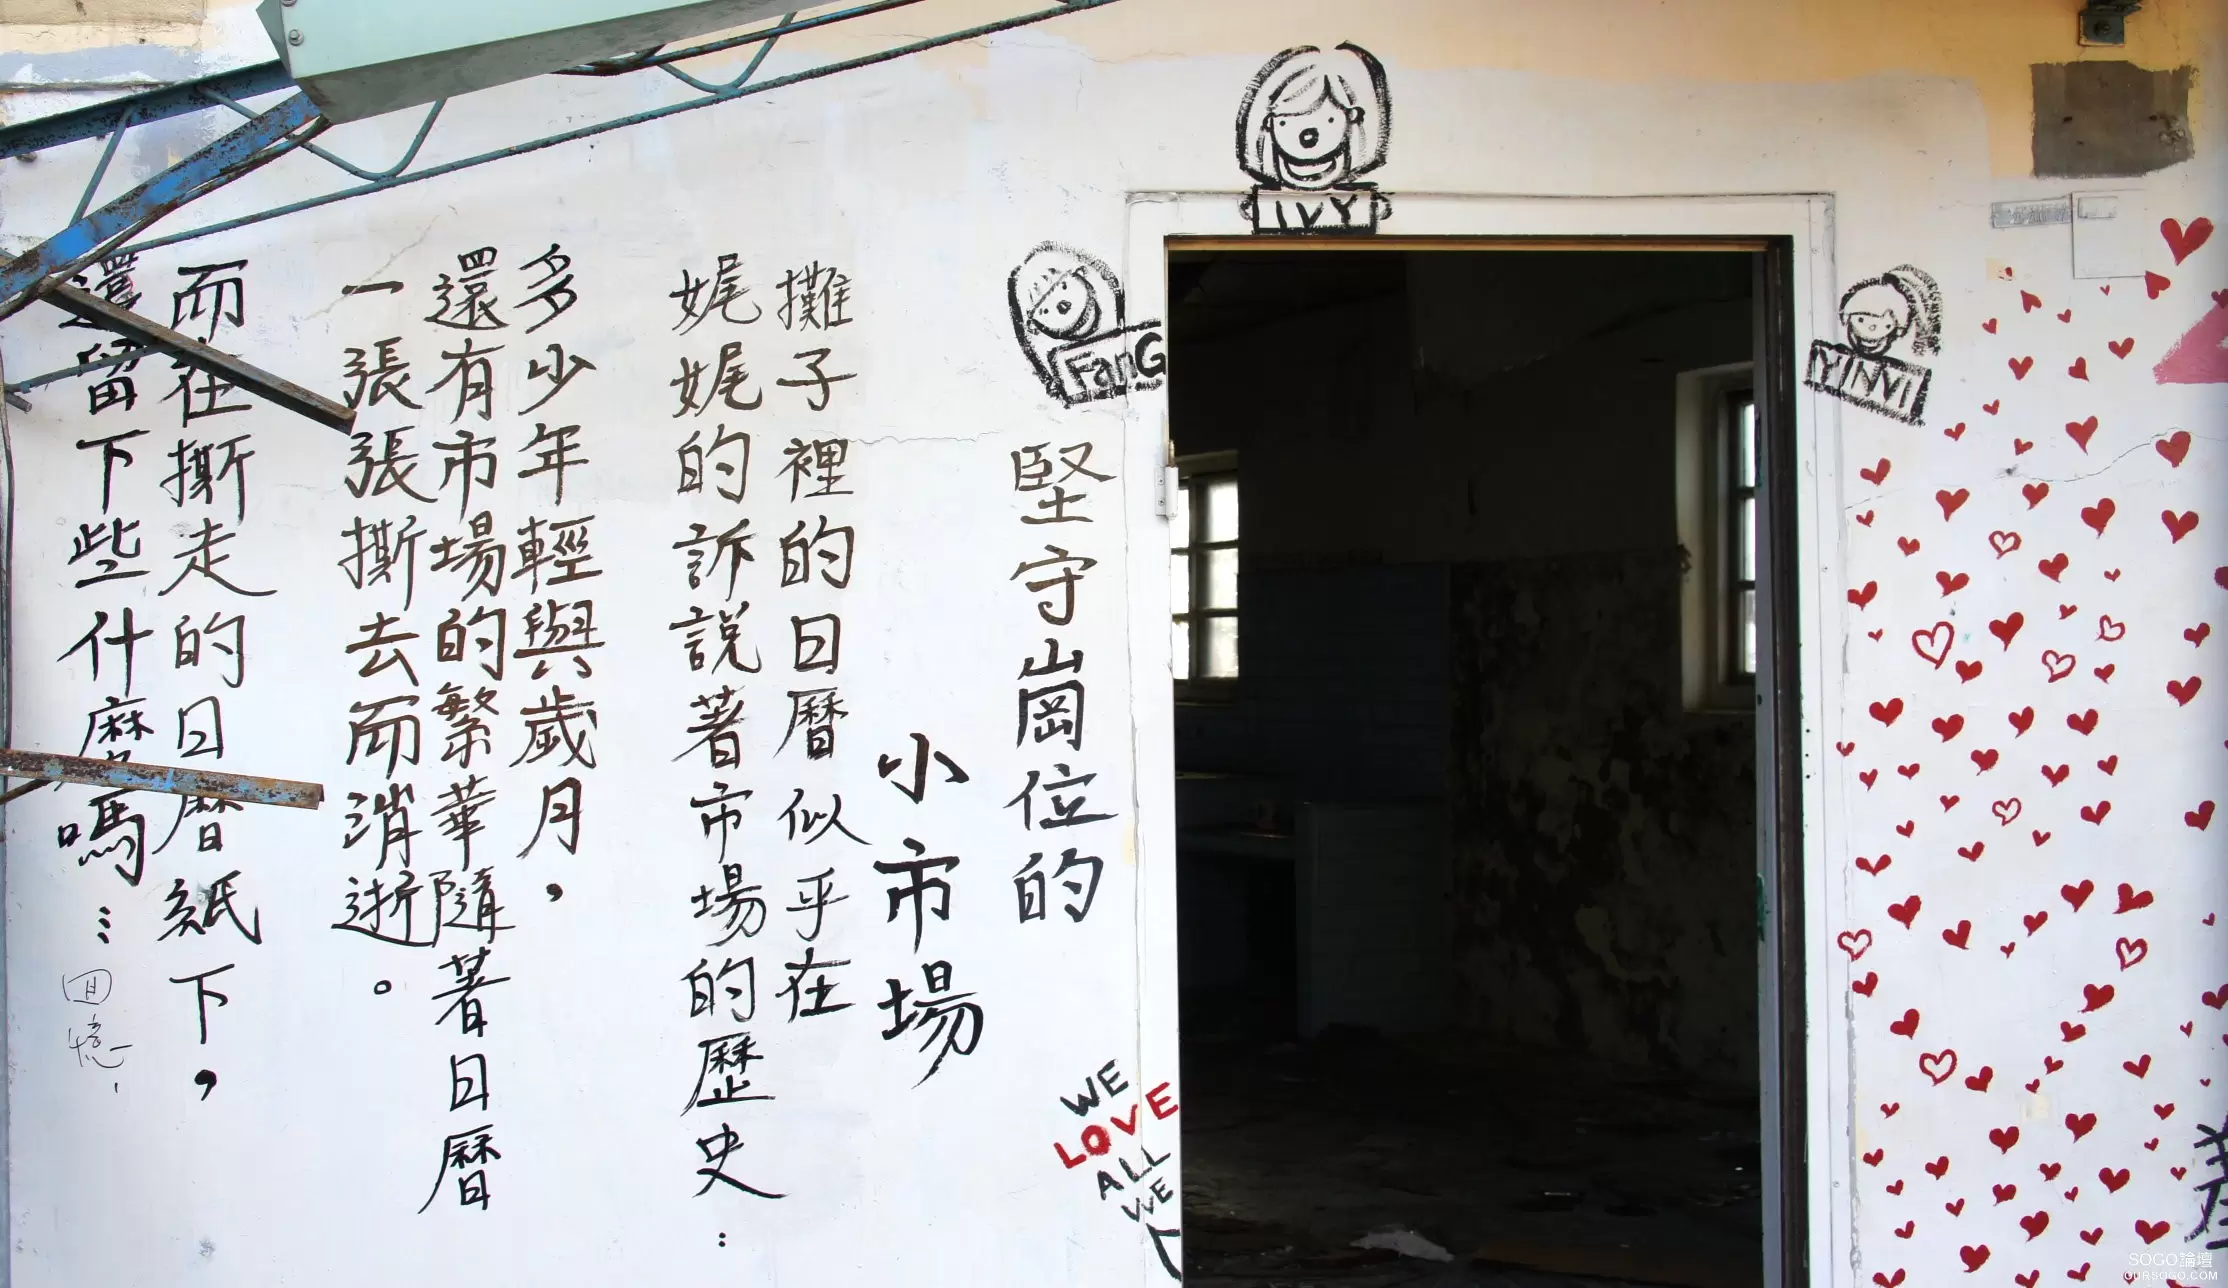 堅守崗位的
小市場
攤子裡的日曆似乎在
娓娓的訴說著市場的歷史…
多少年輕與歲月，
還有市場的繁華隨著日曆
一張張撕去而消逝。
而在撕走的日曆紙下，
還留下些什麼嗎…
回憶，
IVY
FanG
YINVI
WE
LOVE
ALL
WE
SOGO論壇
OURSOGO.COM